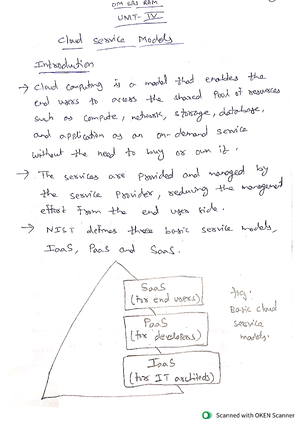 OM SAI RAM
UNIT- IV
Cloud Service Models
Introdution
→ Cloud computing is a model that enables the
end users to access the shared pool of resources
such as compute, network, storage, database,
and application as an on-demand service
without the need to buy or own it.
→ The services are provided and managed by
the service provider, reducing the management
effort from the end user side.
→ NIST defines three basic service models,
IaaS, PaaS and SaaS.
SaaS
(for end users)
PaaS
(for developers)
IaaS
(for IT architects)
fig.
Basic cloud
service
models.
Scanned with OKEN Scanner